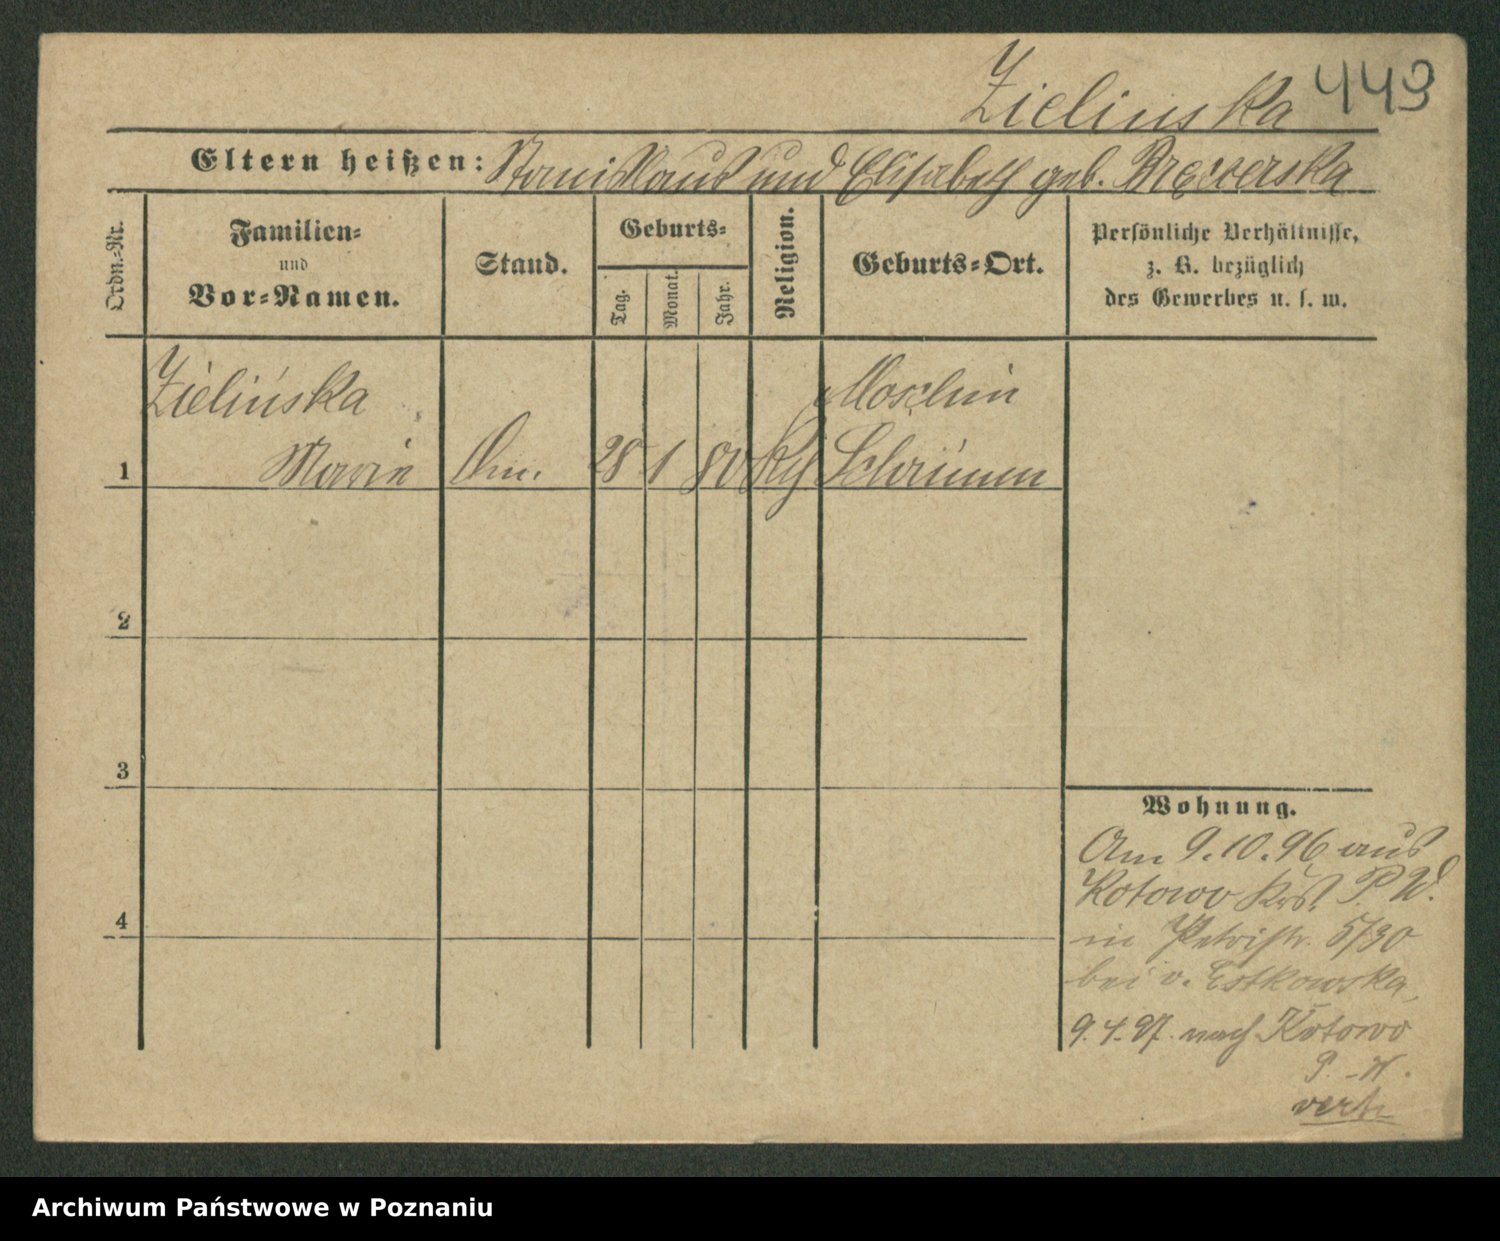 Zielinska 443
Eltern heißen: Stanislaus und Elisabeth geb.
Ordn.-Nr.
Familien-
und
Vor-Namen.
Stand.
Geburts-
Tag.
Monat.
Jahr.
Religion.
Geburts-Ort.
Persönliche Verhältnisse,
z. B. bezüglich
des Gewerbes u. s. w.
Zielińska Moschin
1 Marie 28 1 80 Schrimm
2
3
4
Wohnung.
Am 9.10.96 aus
Kotowo Krs. P. W.
in Petristr. 5/30
bei v. Estkowska,
9.4.97. nach Kotowo
P. W.